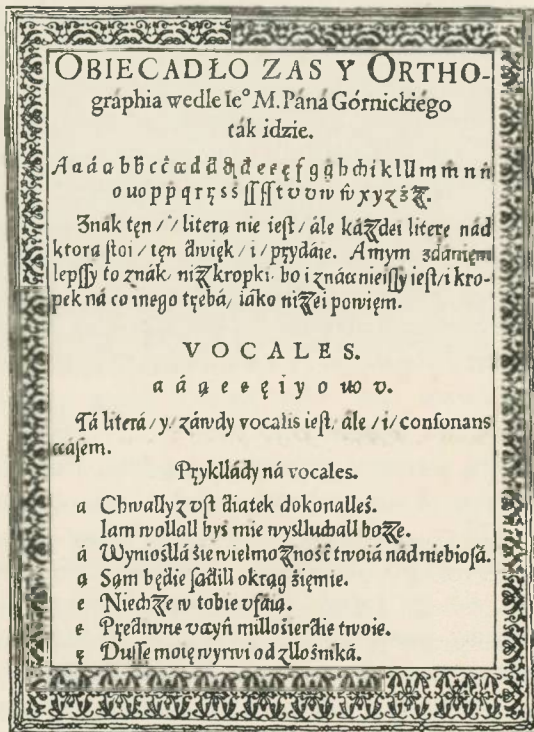 OBIECADŁO ZAS Y ORTHO-
gráphia wedle Ie° M. Páná Górnickiégo
ták idzie.
A a á ą b b̈ c ĉ
o p q r ſ t x y z
Znak tęn / ̈ / litera nie ieſt / ále káżdei literę nád
ktorą ſtoi / tęn dźwięk / i / przydáie. A mym zdaniem
lepſſy to znák, niż kropki. bo i znácznieiſſy ieſt / i kro-
pek ná co inego trzebá, iáko niżei powięm.
VOCALES.
a á ą e ę i y o v.
Tá literá / y. záwdy vocalis ieſt, ále / i / conſonans
czáſem.
Przykłády ná vocales.
a Chwally z vſt dziatek dokonalleś.
Iam wollall byś mie wyſlluchall boże.
á Wynioſllá ſie wielmożność twoiá nád niebioſá.
ą Sąm będzie ſądzill okrąg źięmie.
e Niechże w tobie vfáią.
Przedziwne vczyń milloſierdzie twoie.
ę Duſſę moię wyrwi od zlloſniká.